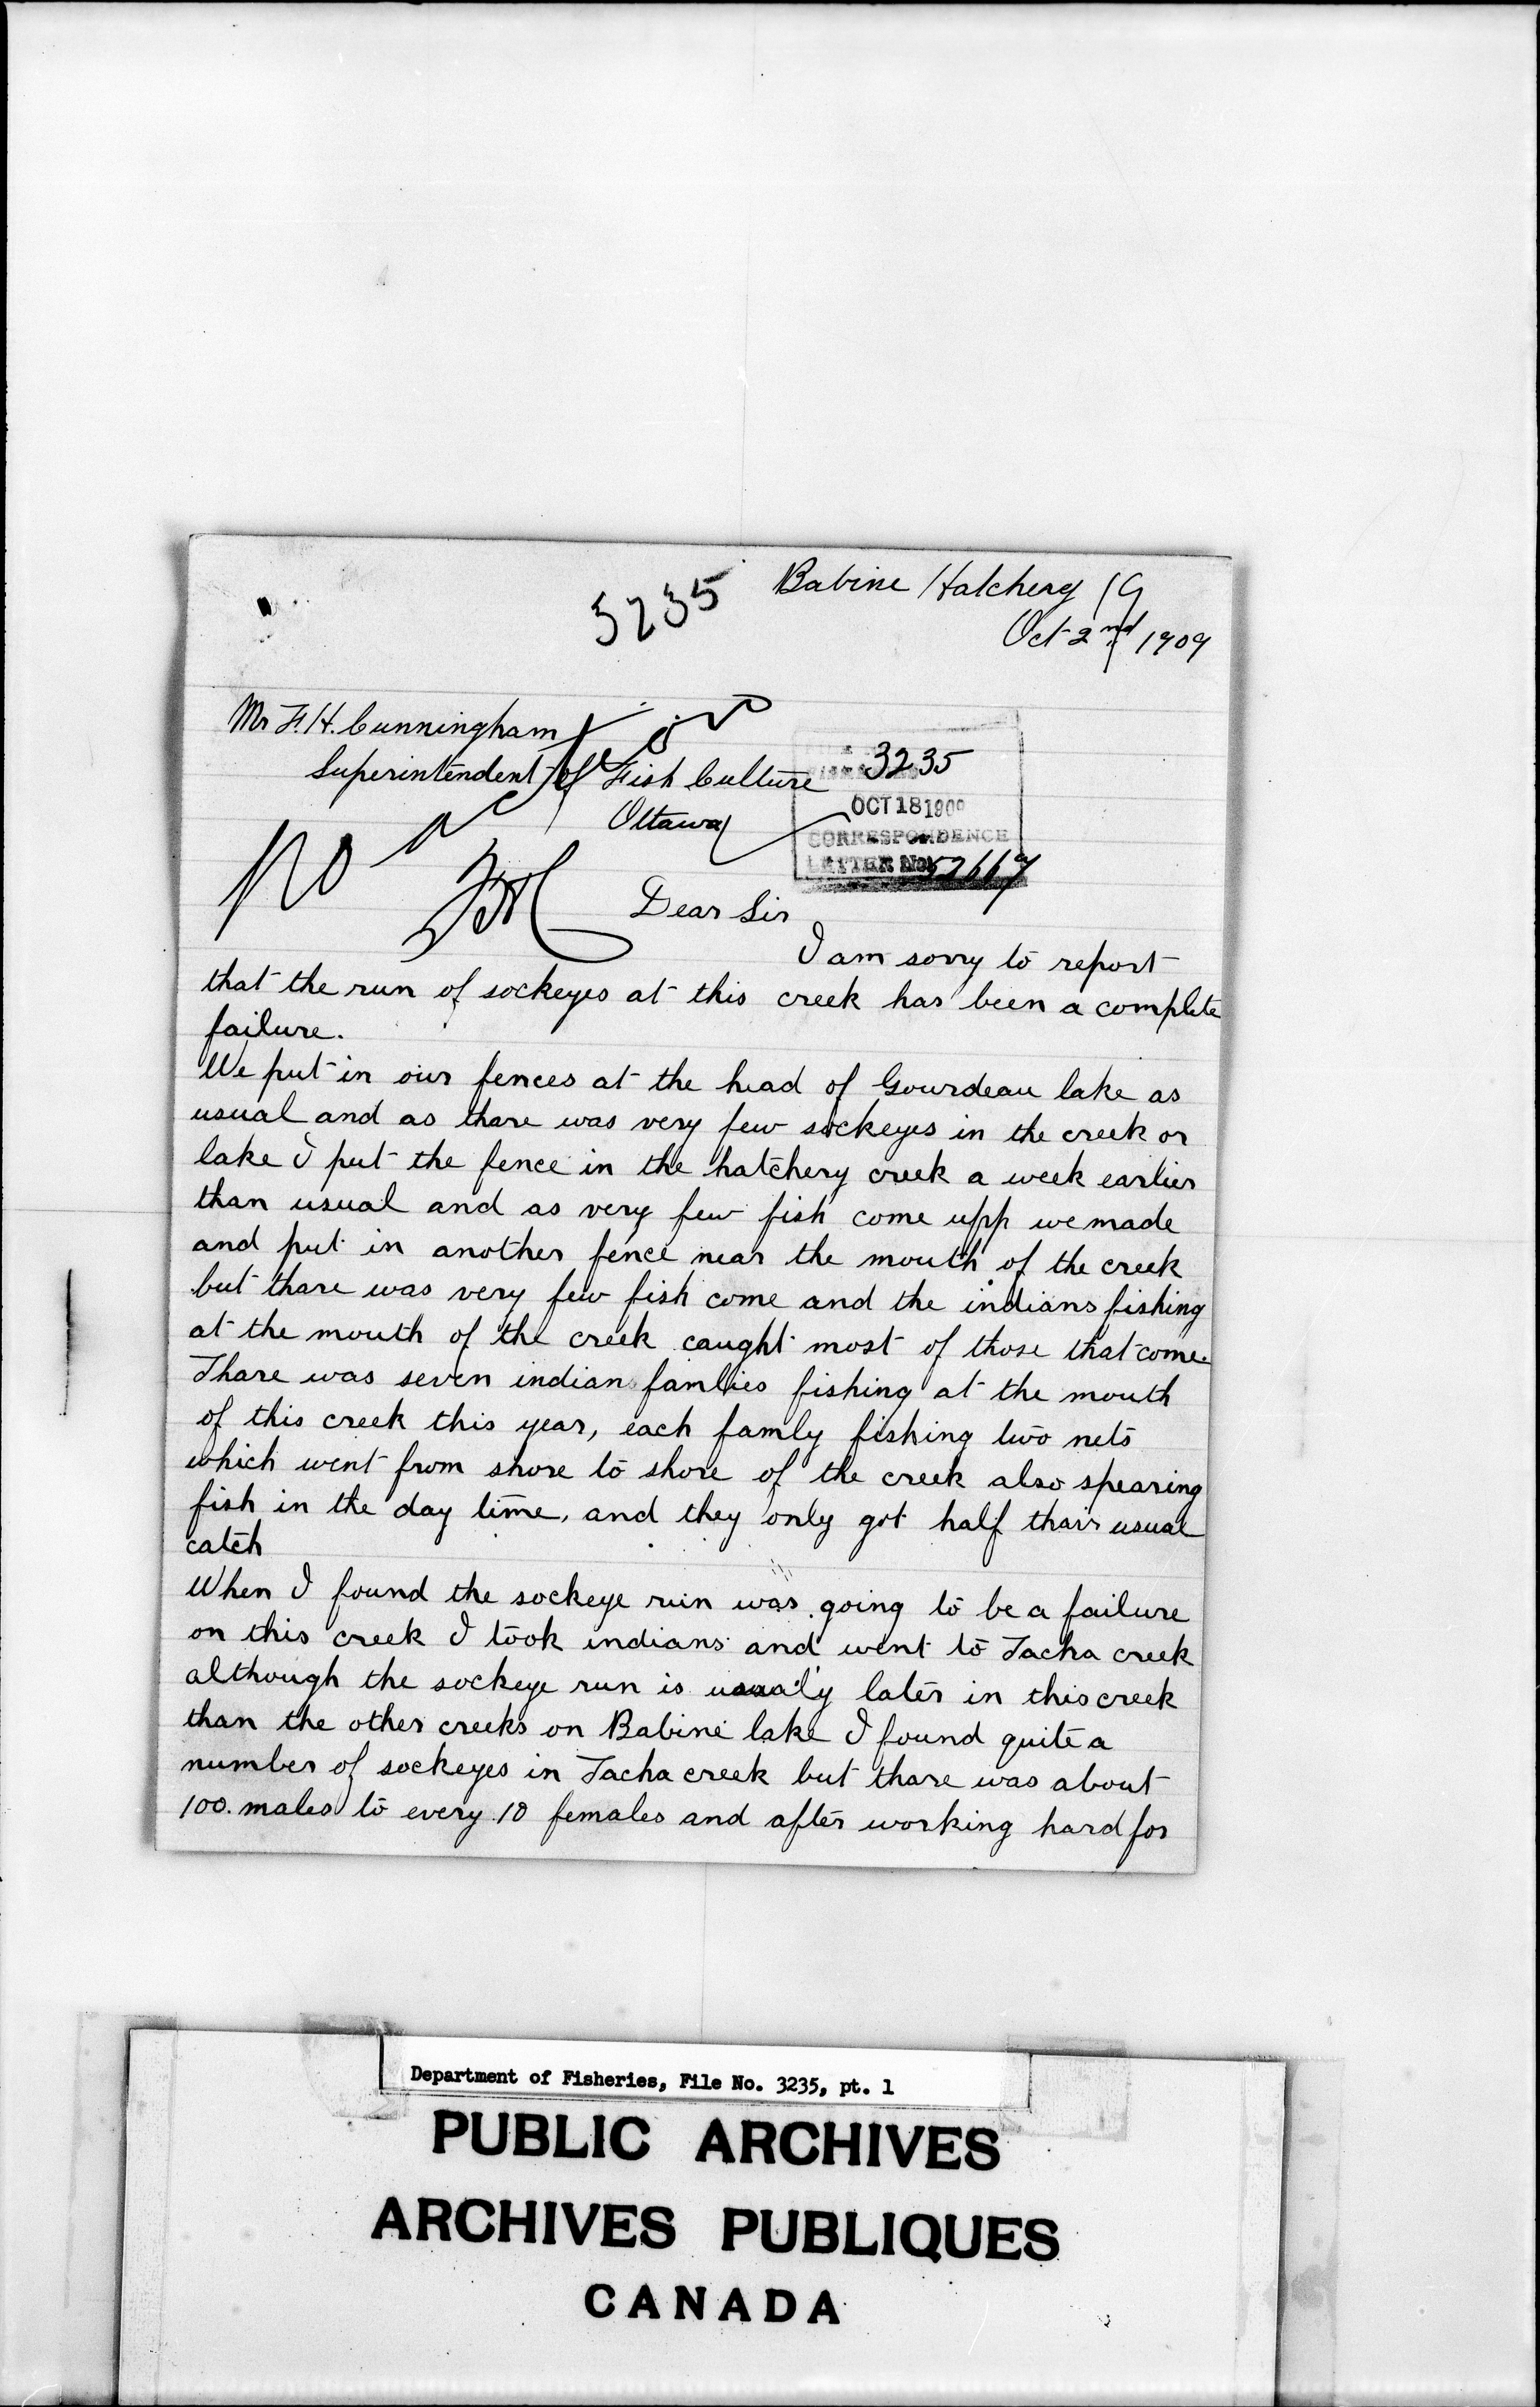 3235
Babine Hatchery
Oct 2nd 1909
Mr F. H. Cunningham
Superintendent of Fish Culture
Ottawa
3235
OCT 18 1909
CORRESPONDENCE
LETTER No.
Dear Sir
I am sorry to report
that the run of sockeyes at this creek has been a complete
failure.
We put in our fences at the head of Gourdeau lake as
usual and as thare was very few sockeyes in the creek or
lake I put the fence in the hatchery creek a week earlier
than usual and as very few fish come upp we made
and put in another fence near the mouth of the creek
but thare was very few fish come and the indians fishing
at the mouth of the creek caught most of those that come.
Thare was seven indian famlies fishing at the mouth
of this creek this year, each famly fishing two nets
which went from shore to shore of the creek also spearing
fish in the day time, and they only got half thair usual
catch
When I found the sockeye run was going to be a failure
on this creek I took indians and went to Tacha creek
although the sockeye run is usualy later in this creek
than the other creeks on Babine lake I found quite a
number of sockeyes in Tacha creek but thare was about
100. males to every 10 females and after working hard for
Department of Fisheries, File No. 3235, pt. 1
PUBLIC ARCHIVES
ARCHIVES PUBLIQUES
CANADA